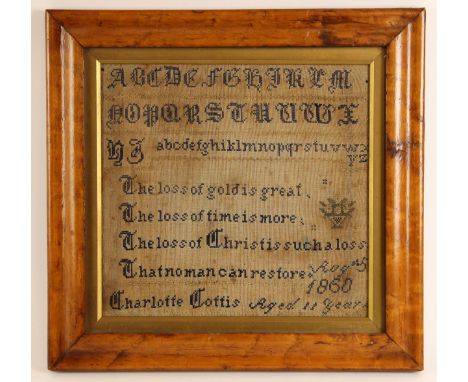 ABCDEFGHIKLM
NOPQRSTUVWX
YZ abcdefghiklmnopqrstuvwx
yz
The loss of gold is great,
The loss of time is more,
The loss of Christ is such a loss
That no man can restore. Augst 5
1860
Charlotte Cottis Aged 11 Years